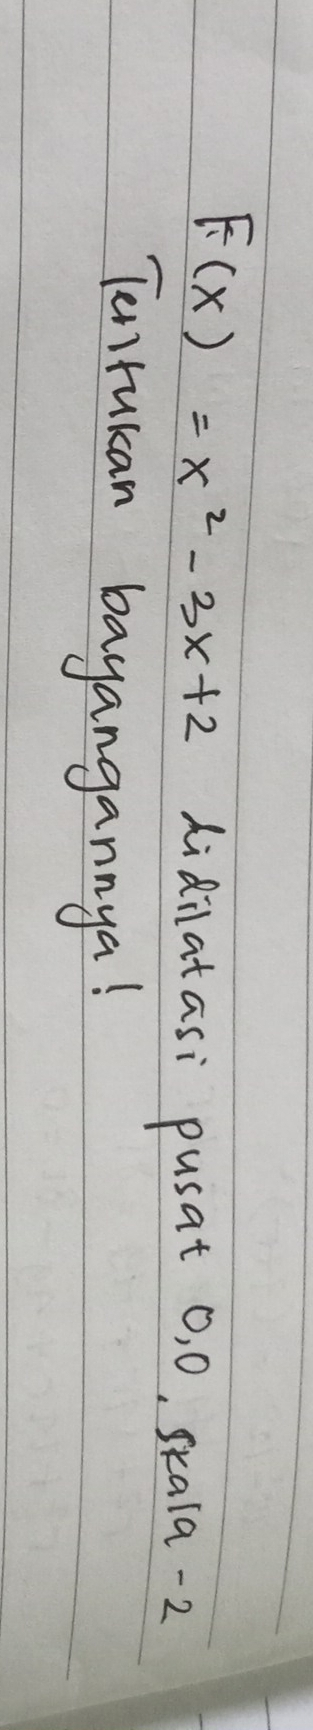 F(x) = x² - 3x+2 didilatasi pusat 0,0, skala -2
Tentukan bayangannya!